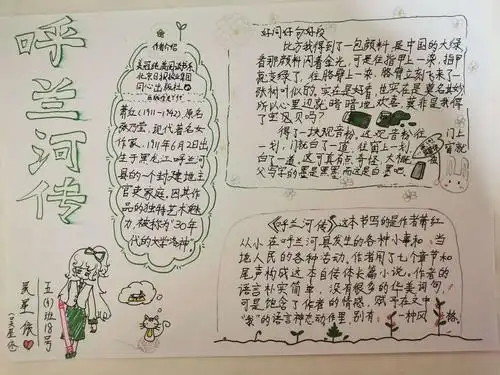 呼兰河传
作者介绍
北京日报报业集团
同心出版社
萧红(1911-1942)原名
张乃莹,现代著名女
作家,1911年6月2日出
生于黑龙江呼兰河
县的一个封建地主
官吏家庭,因其作
品的独特艺术魅
力,被称为"30年
代的大学洛神"
好词好句好段
比方我得到了一包颜料,是中国的大绿
看那颜料闪着金光,可是往指甲上一染,指甲
就变绿了,往胳臂上一染,胳臂立刻飞来了一
张树叶似的,实在是好看,也实在是莫名其妙
所以心里边就暗暗地欢喜,莫非是我得
了宝贝吗?
得了一块观音粉,这观音粉往门上
一划,门就白了一道,往窗上一划,窗就
白了一道,这可真有点奇怪,大概
父写字的墨是黑墨,而这是白墨吧。
《呼兰河传》这本书写的是作者萧红
从小在呼兰河县发生的各种小事和当
地人民的各种活动,作者用了七个章节和
尾声构成这本自传体长篇小说。作者的
语言朴实简单,没有很多的华美词句,
可是饱含了作者的情感,赋予在文中
"我"的语言神态动作里,别有一种风格。
吴星侬
五(4)班18号
(吴星侬)